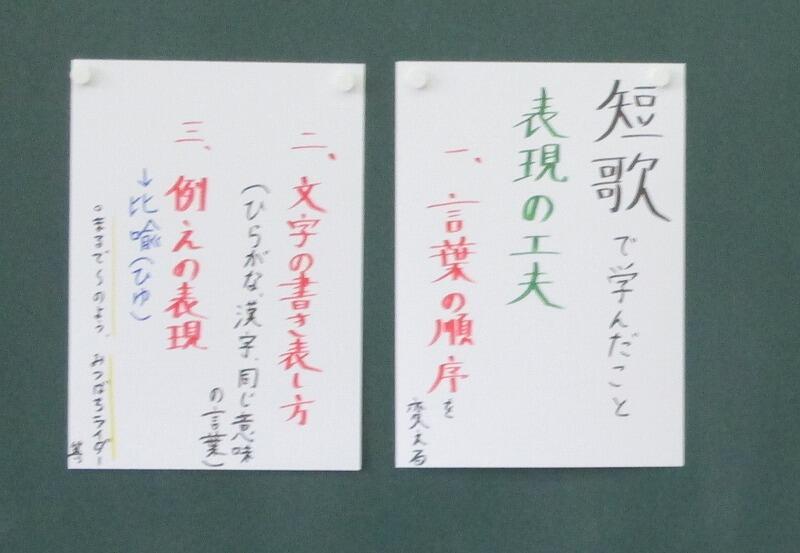 短歌で学んだこと
表現の工夫
一、言葉の順序を
変える
二、文字の書き表し方
(ひらがな、漢字、同じ意味
の言葉)
三、例えの表現
→比喩(ひゆ)
。まるで〜のよう、みつばちライダー
等